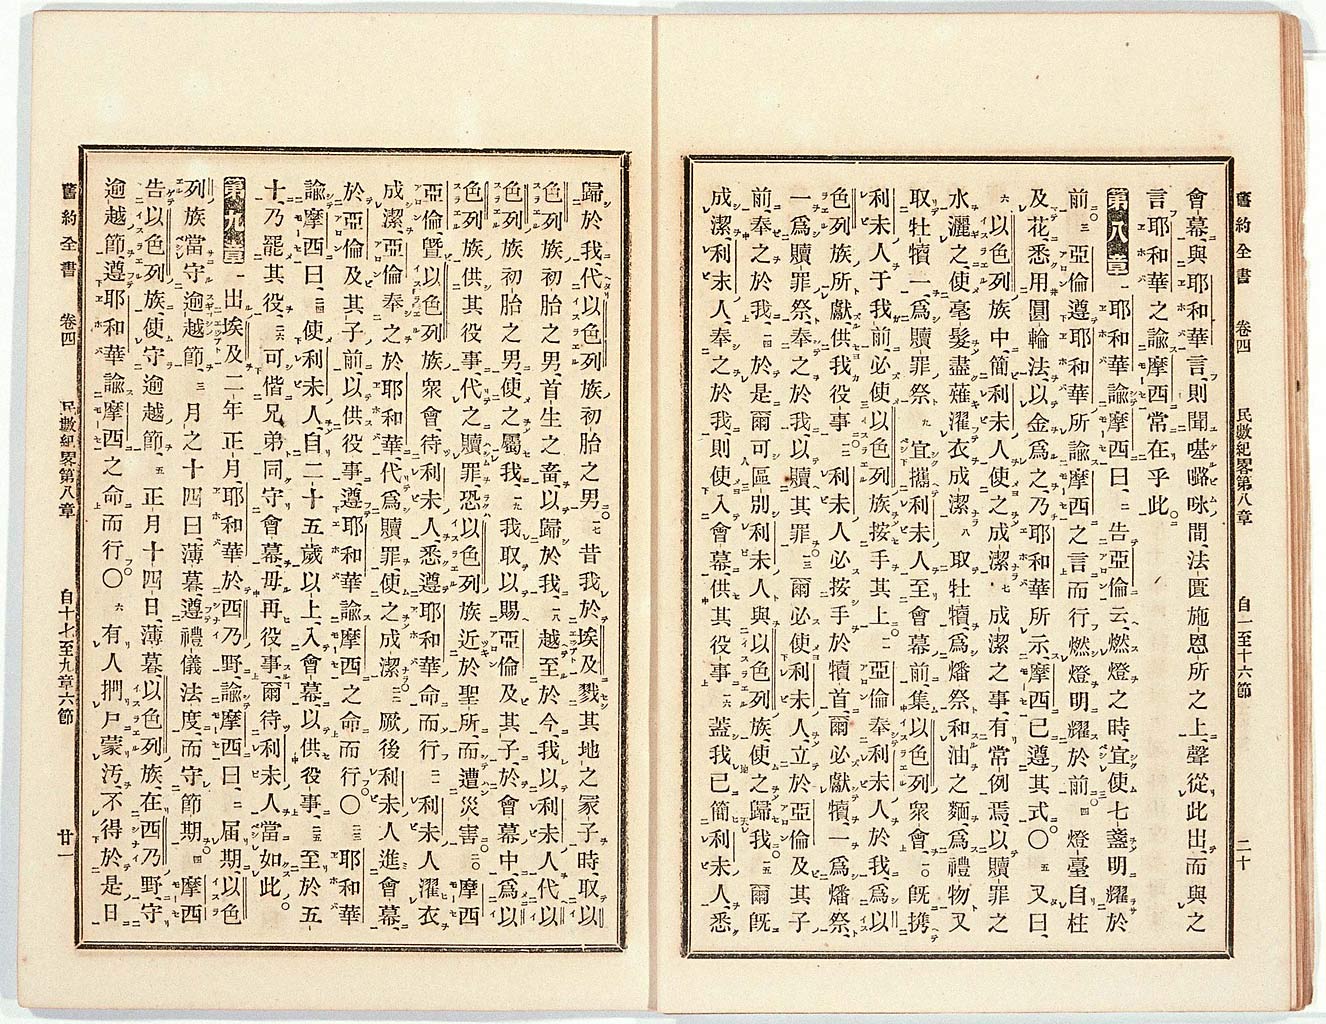 舊約全書 卷四 民數紀畧第八章 自一至十六節 二十
會幕與耶和華言、則聞噁咯咏間、法匱施恩所之上聲從此出、而與之
言耶和華之諭摩西常在乎此。
第八章 一耶和華諭摩西曰、二告亞倫云、燃燈之時、宜使七盞明耀於
前。三亞倫遵耶和華所諭摩西之言而行燃燈明耀於前。四燈臺自柱
及花、悉用圓輪法、以金爲之、乃耶和華所示、摩西已遵其式〇五又曰、
六以色列族中簡利未人使之成潔。七成潔之事、有常例焉、以贖罪之
水灑之、使毫髮盡薙濯衣成潔。八取牡犢、爲燔祭和油之麵、爲禮物又
取牡犢一、爲贖罪祭。九宜攜利未人至會幕前、集以色列衆會。一〇既携
利未人于我前、必使以色列族按手其上。一一亞倫奉利未人於我、爲以
色列族所獻、供我役事。一二利未人必按手於犢首、爾必獻犢、一爲燔祭、
一爲贖罪祭、奉之於我、以贖其罪。一三爾必使利未人、立於亞倫及其子
前奉之於我。一四於是爾可區別利未人、與以色列族、使之歸我。一五爾旣
成潔利未人、奉之於我、則使入會幕供其役事。一六蓋我已簡利未人、悉
歸於我、代以色列族初胎之男。一七昔我於埃及戮其地之冢子時、取以
色列族初胎之男、首生之畜、以歸於我。一八越至於今、我以利未人代以
色列族初胎之男、使之屬我。一九我取以賜亞倫及其子、於會幕中、爲以
色列族供其役事、代之贖罪恐以色列族近於聖所、而遭災害。二〇摩西
亞倫、曁以色列族衆會、待利未人、悉遵耶和華命而行。二一利未人濯衣
成潔、亞倫奉之於耶和華代爲贖罪、使之成潔。二二厥後利未人進會幕、
於亞倫及其子前、以供役事、遵耶和華諭摩西之命而行〇二三耶和華
諭摩西曰、二四使利未人、自二十五歲以上、入會幕、以供役事、二五至於五
十、乃罷其役、二六可偕兄弟同守會幕毋再役事、爾待利未人當如此。
第九章 一出埃及二年正月耶和華於西乃野諭摩西曰、二届期、以色
列族當守逾越節、三月之十四日、薄暮、遵禮儀法度、而守節期。四摩西
告以色列族、使守逾越節。五正月十四日、薄暮、以色列族、在西乃野守
逾越節、遵耶和華諭摩西之命而行〇六有人捫尸蒙汚、不得於是日
舊約全書 卷四 民數紀畧第八章 自十七至九章六節 廿一